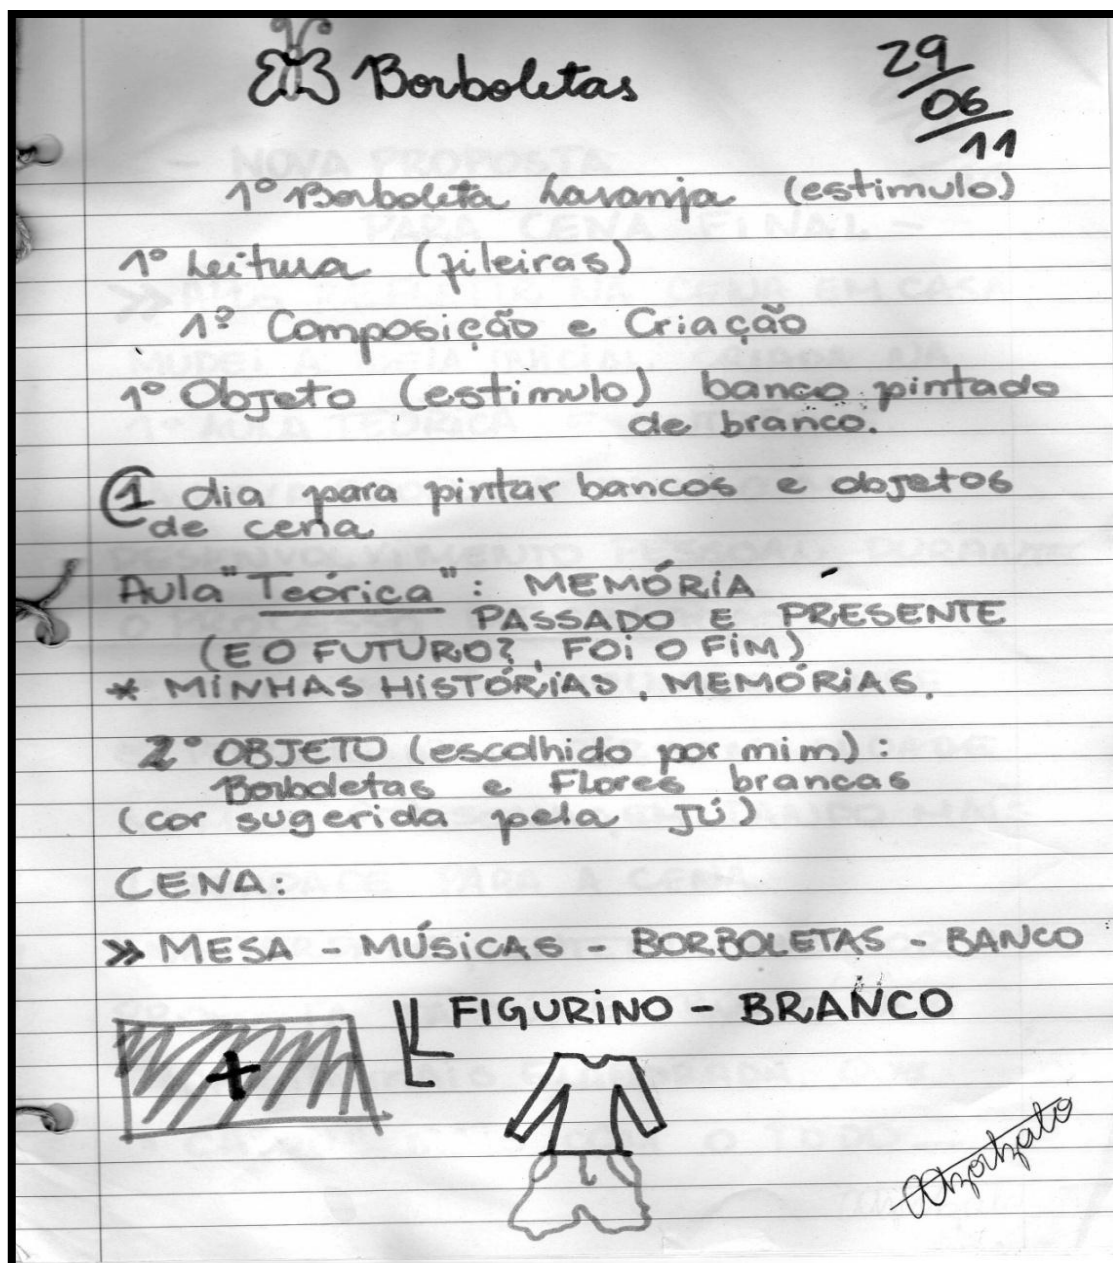 Borboletas
29
06
11
1º Borboleta Laranja (estimulo)
1º Leitura (fileiras)
1º Composição e Criação
1º Objeto (estimulo) banco pintado
de branco.
1 dia para pintar bancos e objetos
de cena
Aula "Teórica": MEMÓRIA
PASSADO E PRESENTE
(E O FUTURO?, FOI O FIM)
* MINHAS HISTÓRIAS, MEMÓRIAS.
2º OBJETO (escolhido por mim):
Borboletas e Flores brancas
(cor sugerida pela JÚ)
CENA:
>> MESA - MÚSICAS - BORBOLETAS - BANCO
FIGURINO - BRANCO
+